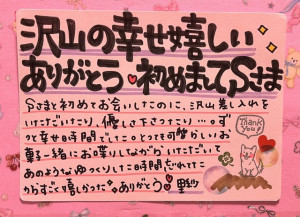 沢山の幸せ嬉しい
ありがとう 初めましてSさま
Sさまと初めてお会いしたのに、沢山差し入れを
いただいたり、優しさ下さったり…。ず
っと幸せ時間でした。とっても可愛らしいお
菓子一緒にお喋りしながらいただいて
あのようなゆっくりした時間忘れてた
からすごく嬉しかった ありがとう
Thank
You!